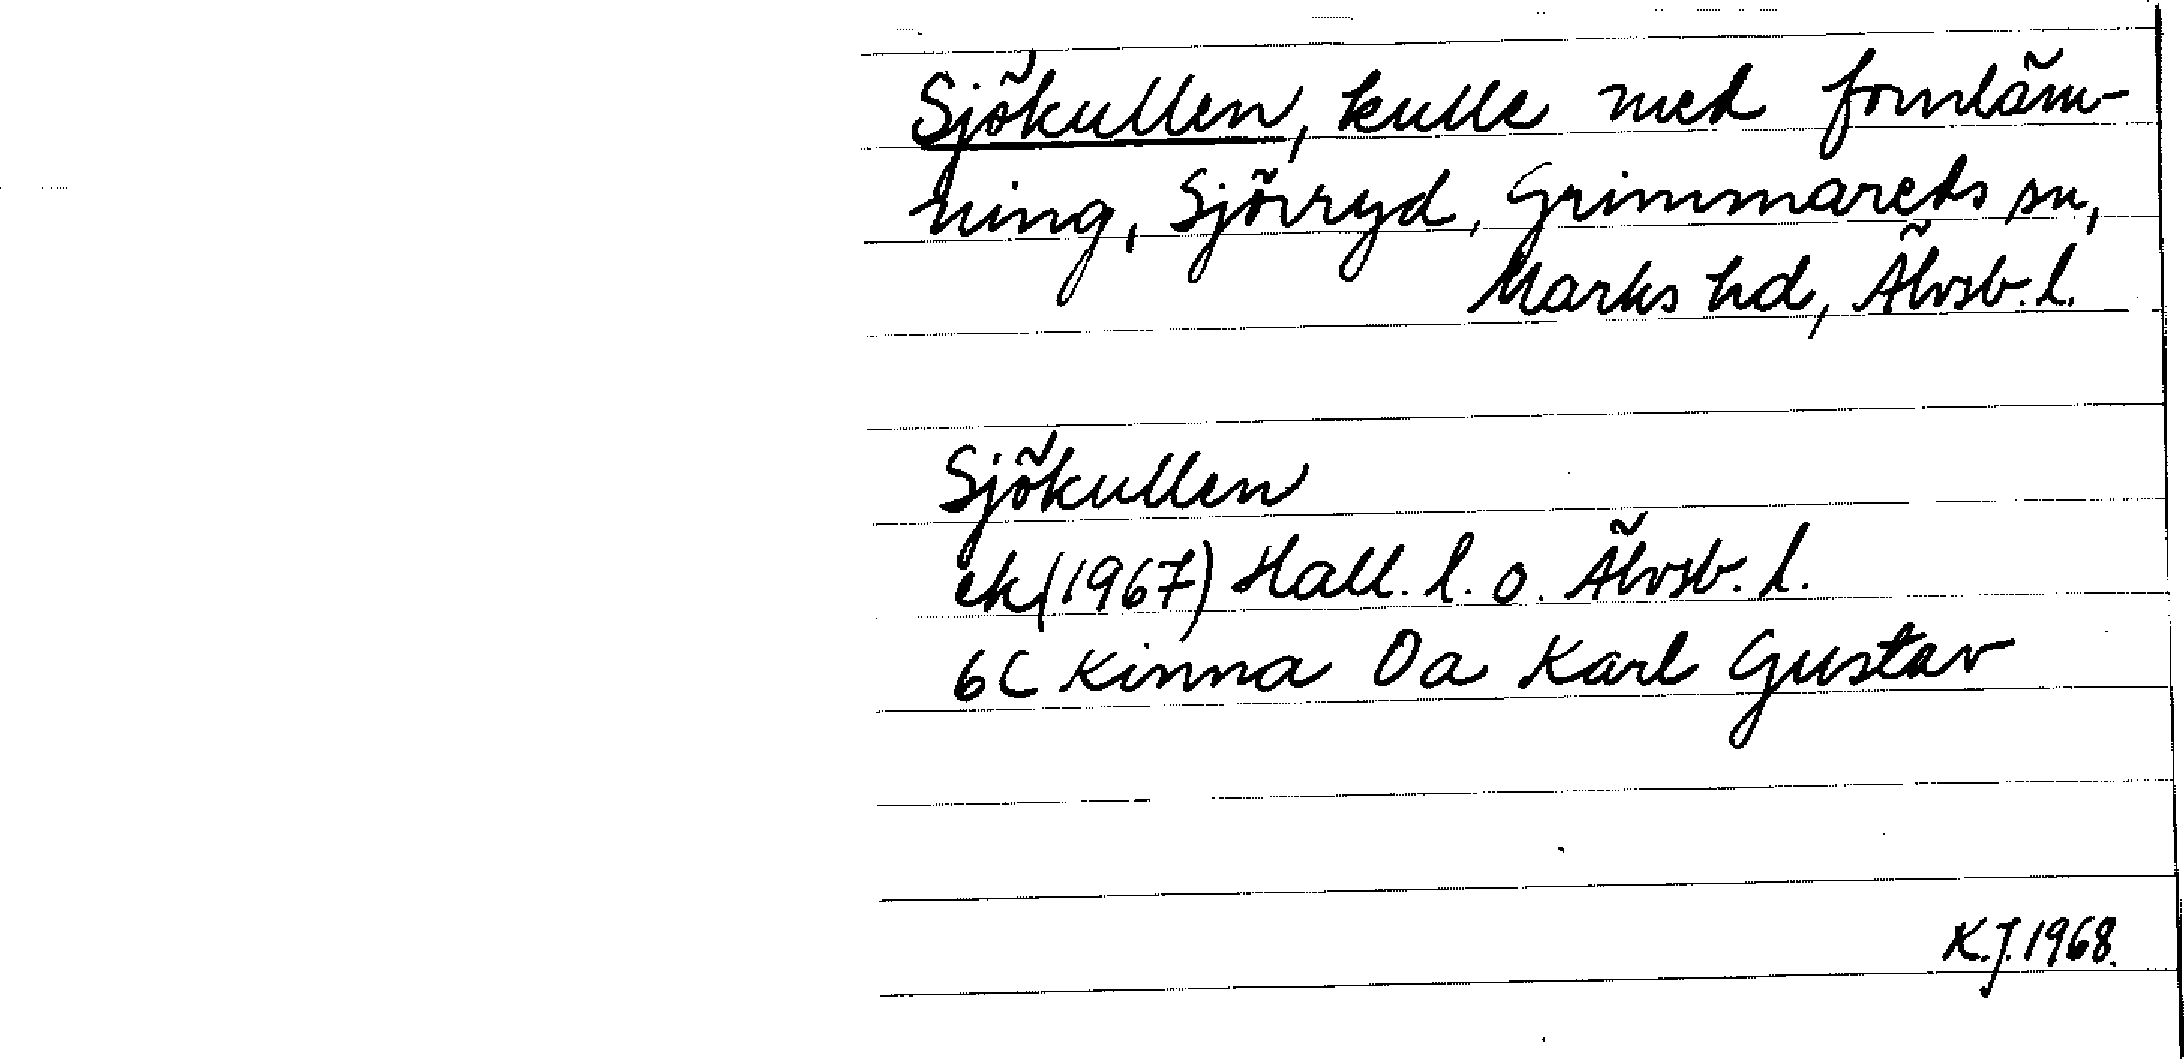 Sjökullen, kulle med fornläm-
ning, Sjöryd, Grimmareds sn,
Marks hd, Älvsb. l.
Sjökullen
ek (1967) Hall. l. o. Älvsb. l.
6C Kinna 0a Karl Gustav
K.J. 1968.